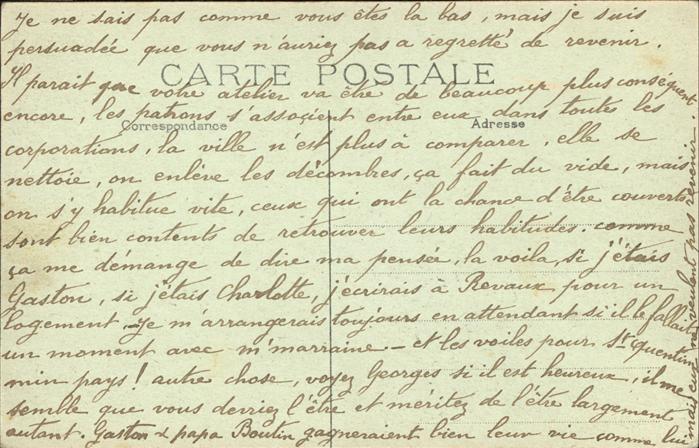 Je ne sais pas comme vous êtes la bas, mais je suis
persuadée que vous n'auriez pas a regretté de revenir.
CARTE POSTALE
Il parait que votre atelier va être de beaucoup plus conséquent
encore, les patrons s'associent entre eux dans toutes les
Correspondance
Adresse
corporations, la ville n'est plus à comparer, elle se
nettoie, on enlève les décombres, ça fait du vide, mais
on s'y habitue vite, ceux qui ont la chance d'être couverts
sont bien contents de retrouver leurs habitudes. comme
ça me démange de dire ma pensée, la voila, si j'étais
Gaston, si j'étais Charlotte, j'écrirais à Revaux pour un
logement - Je m'arrangerais toujours en attendant si il le fallait
un moment avec m'marraine - et les voiles pour St Quentin
min pays! autre chose, voyez Georges si il est heureux, il me
semble que vous devriez l'être et méritez de l'être largement
autant. Gaston & papa Boutin gagneraient bien leur vie comme lui